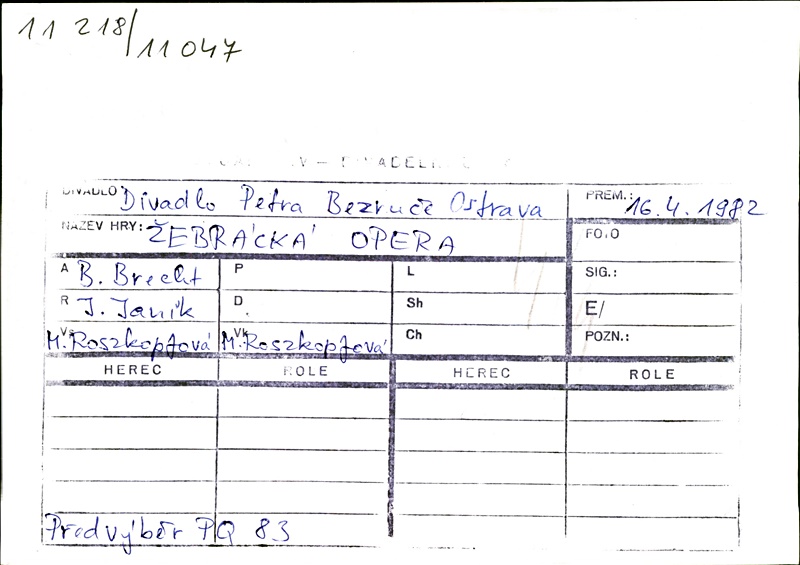 11 218/11 047
DIVADLO Divadlo Petra Bezruče Ostrava PREM.: 16.4.1982
NÁZEV HRY: ŽEBRÁCKÁ OPERA FOTO
A B. Brecht P L SIG.:
R J. Janík D Sh E/
M. Roszkopfová Vk M. Roszkopfová Ch POZN.:
HEREC ROLE HEREC ROLE
Předvýběr PQ 83